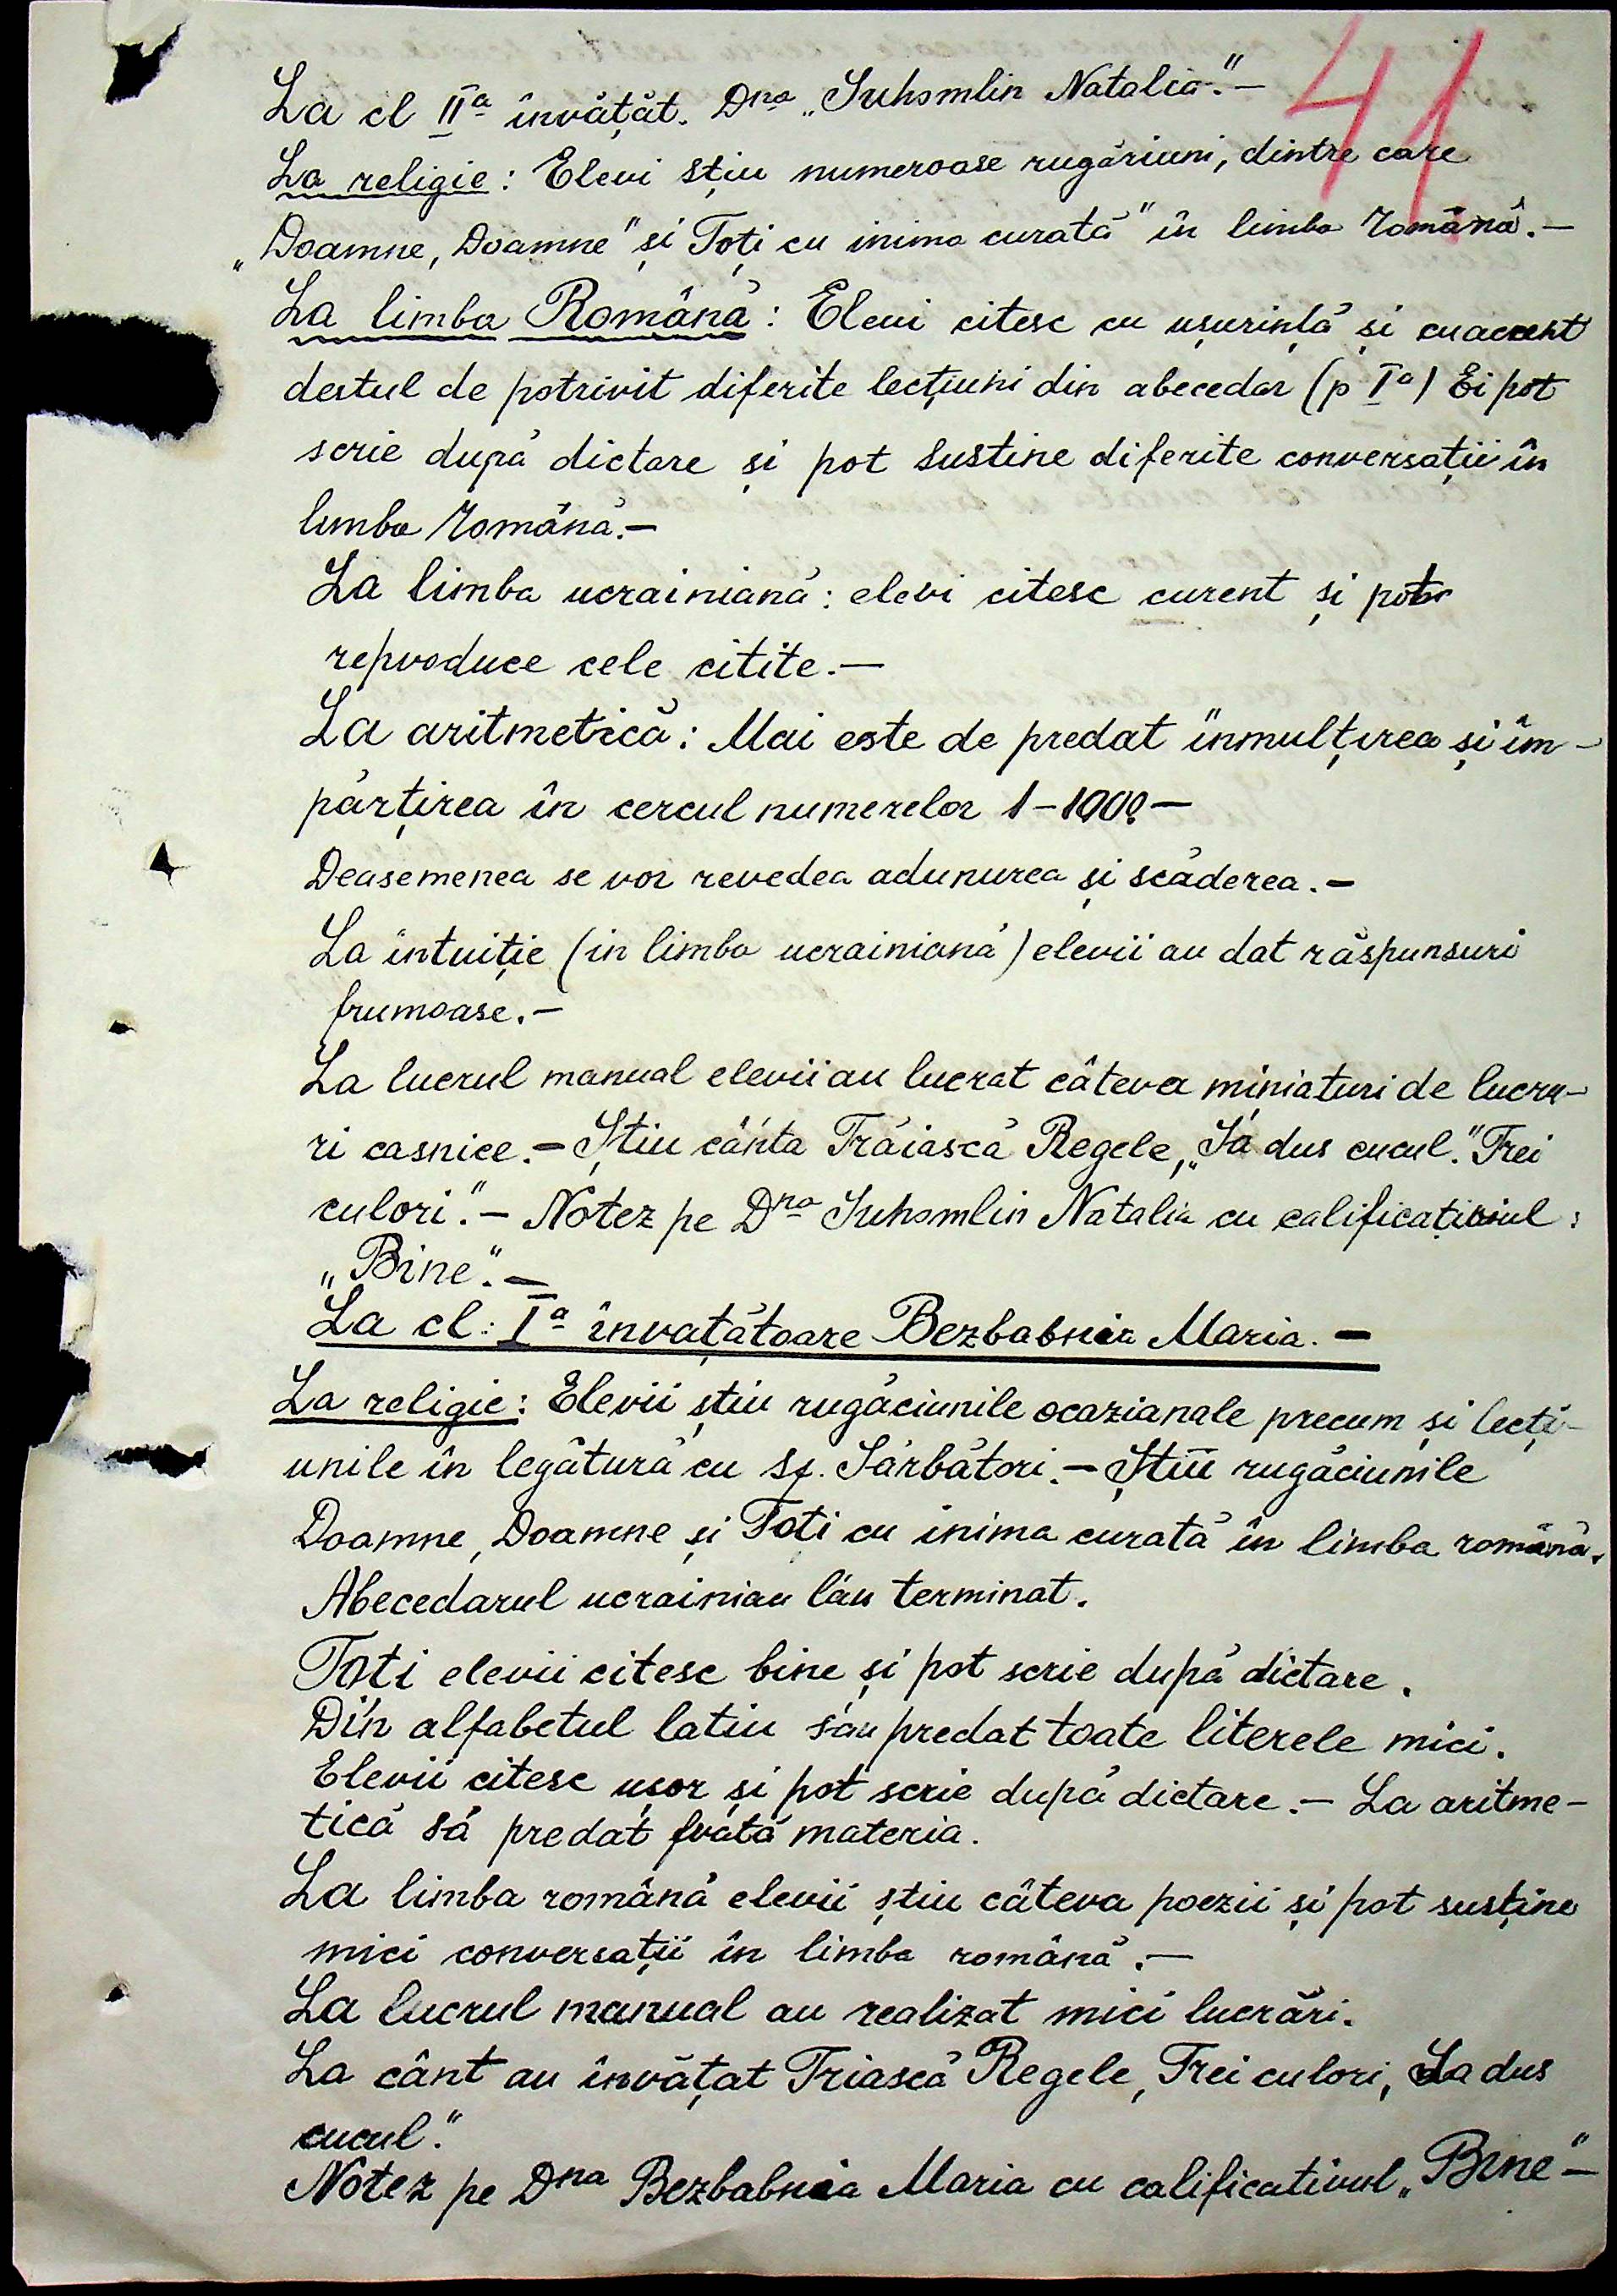 41
La cl IIª învățăt. Dna „Suhomlin Natalia“.—
La religie: Elevi știu numeroase rugăriuni, dintre care
„Doamne, Doamne“ și Toți cu inima curată“ în limba română.—
La limba Română: Elevi citesc cu ușurință și cu accent
destul de potrivit diferite lecțiuni din abecedar (p Iª) Ei pot
scrie după dictare și pot sustine diferite conversații în
limba română.—
La limba ucrainiană: elevi citesc curent și pot
reproduce cele citite.—
La aritmetică: Mai este de predat înmulțirea și îm-
părțirea în cercul numerelor 1-1000.—
Deasemenea se vor revedea adunurea și scăderea.—
La intuiție (in limba ucrainiană) elevii au dat răspunsuri
frumoase.—
La lucrul manual elevii au lucrat câteva miniaturi de lucru-
ri casnice.— Știu cânta Trăiască Regele, „Sa dus cucul“. "Trei
culori“.— Notez pe Dna Suhomlin Natalia cu calificativul:
„Bine“.—
La cl: Iª învațătoare Bezbabnia Maria.—
La religie: Elevii știu rugăciunile ocazianale precum și lecți-
unile în legătură cu Sf. Sărbători.— Știu rugăciunile
Doamne, Doamne și Toti cu inima curată în limba română.
Abecedarul ucrainian l'au terminat.
Toti elevii citesc bine și pot scrie după dictare.
Din alfabetul latin s'au predat toate literele mici.
Elevii citesc ușor și pot scrie după dictare.— La aritme-
tică să predat materia.
La limba română elevii știu câteva poezii și pot susține
mici conversații în limba română.—
La lucrul manual au realizat mici lucrări.
La cânt au învățat Triască Regele, Trei culori, Sa dus
cucul“.
Notez pe Dna Bezbabnia Maria cu calificativul „Bine“—